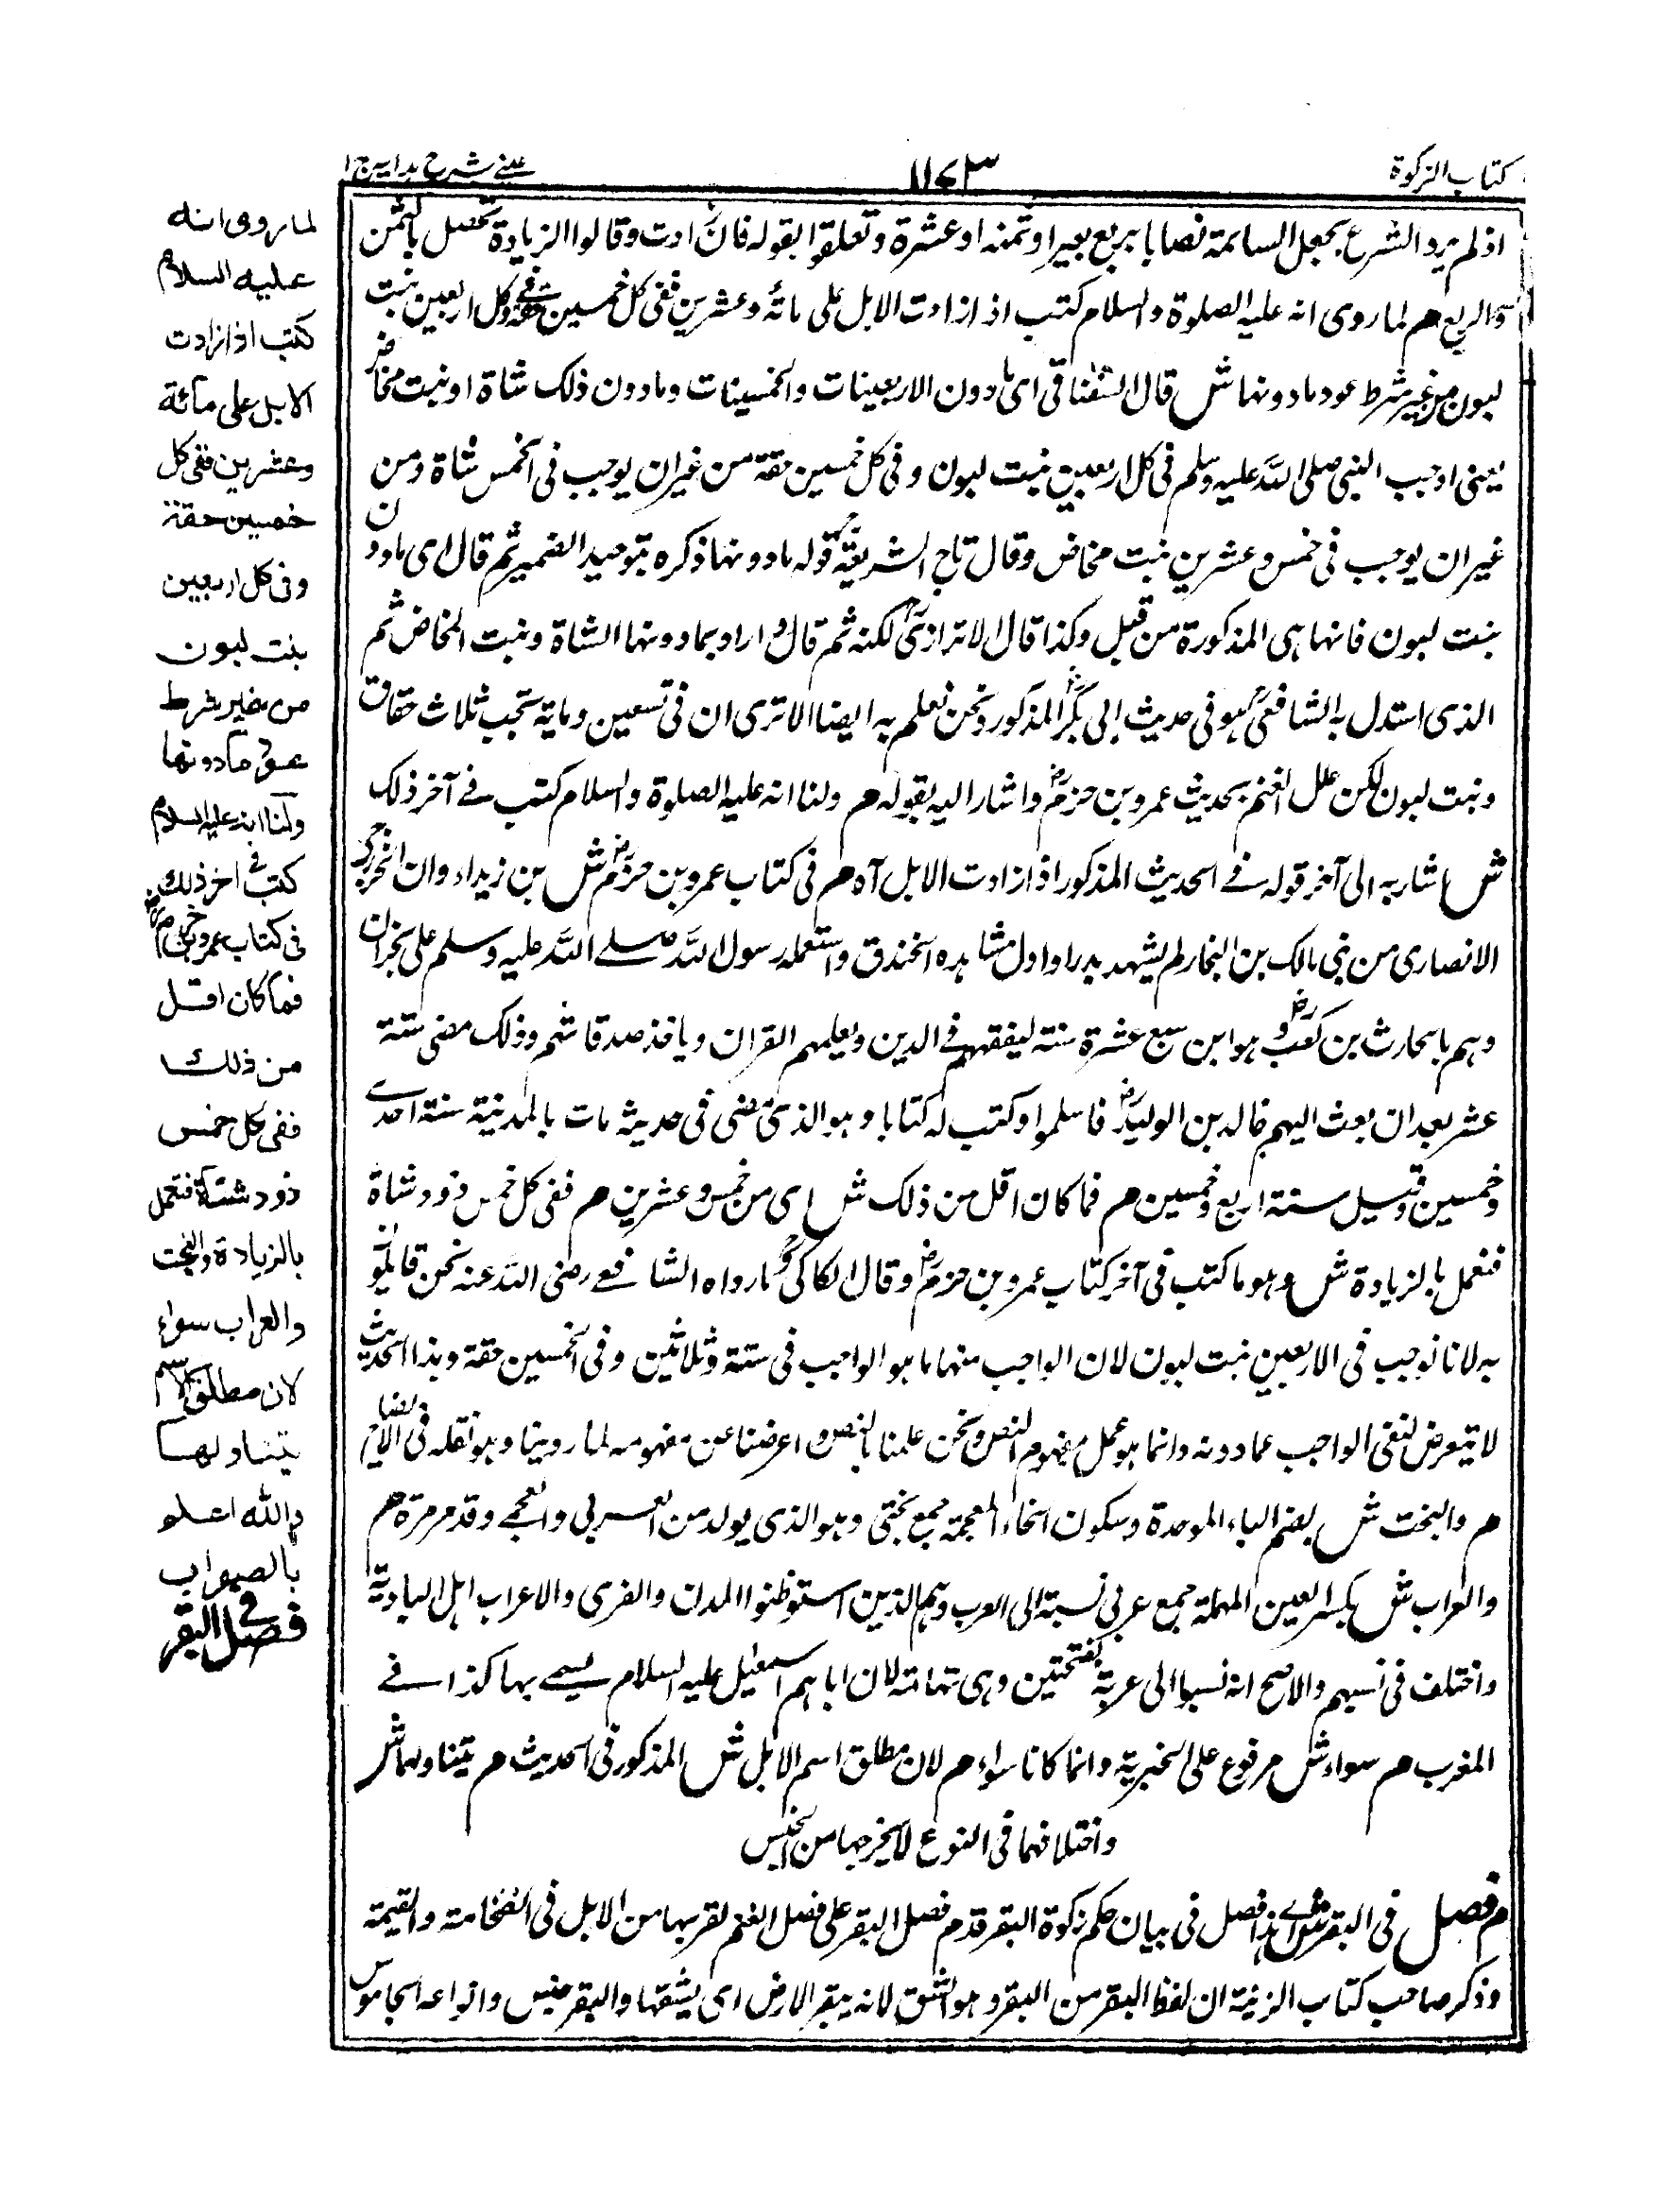 كتاب الزكوة
١١٤٣
عينے شرح هدايہ ج ١
اذ لم يرد الشرع بجعل السائمة نصابا بربع بعير او ثمنه او عشرة وتعلقوا بقوله فان زادت وقالوا الزيادة تحصل بالثمن
والربع هم لما روى انه عليه الصلوة والسلام كتب اذا زادت الابل على مائة وعشرين ففى كل خمسين حقة وفى كل اربعين بنت
لبون من غير شرط عود مادونها ش قال السغناقى اى مادون الاربعينات والخمسينات ومادون ذلك شاة او بنت مخاض
يعنى اوجب النبى صلى الله عليه وسلم فى كل اربعين بنت لبون وفى كل خمسين حقة من غير ان يوجب فى الخمس شاة ومن
غير ان يوجب فى خمس وعشرين بنت مخاض وقال تاج الشريعة قوله مادونها ذكره بتوحيد الضمير ثم قال اى مادون
بنت لبون فانها هى المذكورة من قبل وكذا قال الاترازى لكنه ثم قال واراد بما دونها الشاة وبنت المخاض ثم
الذى استدل به الشافعى هو فى حديث ابى بكر المذكور ونحن نعلم به ايضا الا ترى ان فى تسعين ومایة تجب ثلاث حقاق
وبنت لبون لكن علل الغنم بحديث عمرو بن حزم واشار اليه بقوله هم ولنا انه عليه الصلوة والسلام كتب فے آخر ذلك
ش اشار به الى آخر قوله فے الحديث المذكور اذا زادت الابل آه هم فى كتاب عمرو بن حزم ش بن زيد ابو وان الخزرجى
الانصارى من بنى مالك بن النجار لم يشهد بدرا واول مشاهده الخندق واستعمله رسول الله صلے الله عليه وسلم على نجران
وهم بالحارث بن كعب وهو ابن سبع عشرة سنة ليفقههم فے الدين ويعلمهم القران وياخذ صدقاتهم وذلك مضى ستة
عشر بعد ان بعث اليهم خالد بن الوليد فاسلموا وكتب له كتابا وهو الذى مضى فى حديثه مات بالمدينة سنة احدے
وخمسين وقيل سنة اربع وخمسين هم فما كان اقل من ذلك ش اى من خمس وعشرين هم ففى كل خمس ذود شاة
فنعمل بالزيادة ش وهو ما كتب فى آخر كتاب عمرو بن حزم وقال الكاكى وما رواه الشافعے رضى الله عنه نحن قائلون
به لانا نوجب فى الاربعين بنت لبون لان الواجب منها ما هو الواجب فى ستة وثلاثين وفى الخمسين حقة وهذا الحديث
لا يتعرض لنفى الواجب عما دونه وانما هو عمل بمفهوم النص ونحن علمنا بالنص واعرضنا عن مفهومه لما روينا وهو نقله فى الايضاح
هم والبخت ش بضم الباء الموحدة وسكون الخاء المعجمة جمع بختى وهو الذى يولد من العربى والعجمے وقد مر مرة هم
والعراب ش بكسر العين المهملة جمع عربى نسبة الى العرب وهم الذين استوطنوا المدن والقرى والاعراب اهل البادية
واختلف فى نسبهم والاصح انه نسبوا الى عربة بفتحتين وهى تهامة لان اباهم اسمعيل عليه السلام يسمے بها كذا فے
المغرب هم سواء ش مرفوع على الخبرية وانما كانا سواء هم لان مطلق اسم الابل ش المذكور فى الحديث هم يتناولهما ش
واختلافهما فى النوع لا يخرجهما من الجنس
هم فصل فى البقر ش اى هذا فصل فى بيان حكم زكوة البقر قدم فصل البقر على فصل الغنم لقربها من الابل فى الضخامة والقيمة
وذكر صاحب كتاب الزينة ان لفظ البقر من البقر وهو الشق لانه يبقر الارض اى يشقها والبقر جنس وانواعه الجاموس
لما روى انه
عليه السلام
كتب اذا زادت
الابل على مائة
وعشرين ففى كل
خمسين حقة
وفى كل اربعين
بنت لبون
من غير شرط
عود مادونها
ولنا انه عليه السلام
كتب فى اخر ذلك
فى كتاب عمرو بن حزم
فما كان اقل
من ذلك
ففى كل خمس
ذود شاة فنعمل
بالزيادة والبخت
والعراب سواء
لان مطلق الاسم
يتناولها
والله اعلم
بالصواب
فصل فى البقر